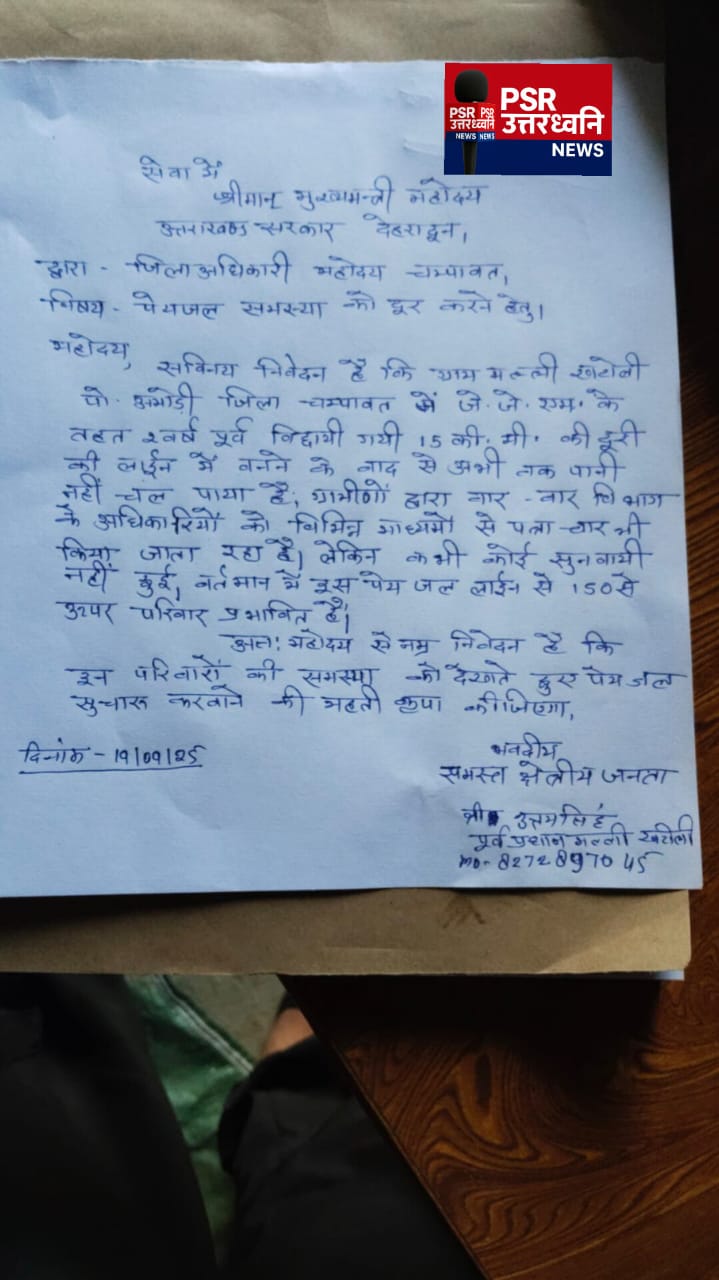 PSR
उत्तरध्वनि
NEWS
PSR PSR
उत्तरध्वनि
NEWS NEWS
सेवा में
श्रीमान् मुख्यमन्त्री महोदय
उत्तराखण्ड सरकार देहरादून,
द्वारा - जिलाअधिकारी महोदय चम्पावत,
विषय - पेयजल समस्या को दूर करने हेतु।
महोदय, सविनय निवेदन है कि ग्राम मल्ली खटोली
पो. अमोडी जिला चम्पावत में जे.जे.एम. के
तहत २वर्ष पूर्व विछायी गयी 15 की. मी. की दूरी
की लाईन में बनने के बाद से अभी तक पानी
नहीं चल पाया है, ग्रामीणों द्वारा बार - बार विभाग
के अधिकारियों को विभिन्न माध्यमों से पत्राचार भी
किया जाता रहा है। लेकिन कभी कोई सुनवायी
नहीं हुई, वर्तमान में इस पेय जल लाईन से 150 से
ऊपर परिवार प्रभावित हैं।
अतः महोदय से नम्र निवेदन है कि
इन परिवारों की समस्या को देखते हुए पेयजल
सुचारू करवाने की महती कृपा कीजिएगा,
दिनांक - 19/09/25
भवदीय
समस्त क्षेत्रीय जनता
श्री उत्तम सिंह
पूर्व प्रधान मल्ली खटोली
mo- 8272897045